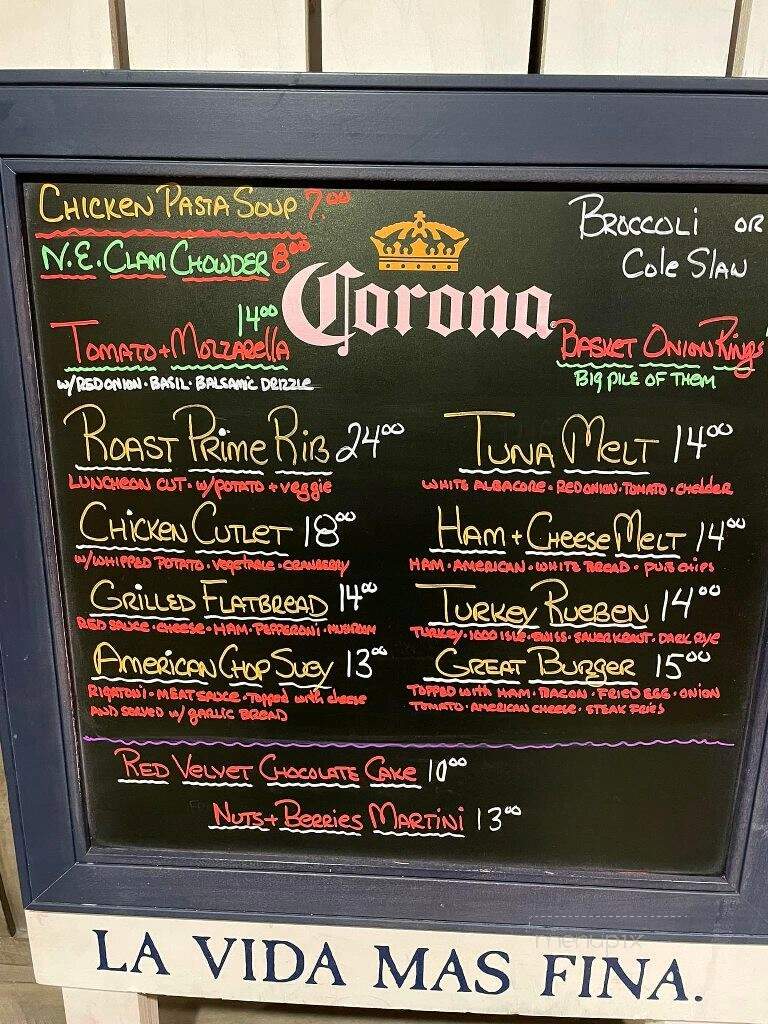 CHICKEN PASTA SOUP 7.00
N.E. CLAM CHOWDER 8.00
BROCCOLI OR
Cole Slaw
Corona
14.00
TOMATO + MOZZARELLA
w/RED ONION · BASIL · BALSAMIC DRIZZLE
BASKET ONION Rings
BIG PILE OF THEM
ROAST PRIME RIB 24.00
LUNCHEON CUT · w/POTATO + veggie
CHICKEN CUTLET 18.00
W/WHIPPED POTATO · VEGETABLE · CRANBERRY
GRILLED FLATBREAD 14.00
RED SAUCE · CHEESE · HAM · PEPPERONI · MUSHROOM
AMERICAN CHOP SUEY 13.00
RIGATONI · MEAT SAUCE · Topped with cheese
AND SERVED w/ GARLIC BREAD
TUNA MELT 14.00
WHITE ALBACORE · RED ONION · TOMATO · cheddar
HAM + CHEESE MELT 14.00
HAM · AMERICAN · WHITE BREAD · PUB CHIPS
TURKEY RUEBEN 14.00
TURKEY · 1000 ISLE · SWISS · SAUERKRAUT · DARK RYE
GREAT BURGER 15.00
TOPPED WITH HAM · BACON · FRIED EGG · ONION
TOMATO · AMERICAN CHEESE · STEAK FRIES
RED VELVET CHOCOLATE CAKE 10.00
NUTS + BERRIES MARTINI 13.00
menupix
LA VIDA MAS FINA.